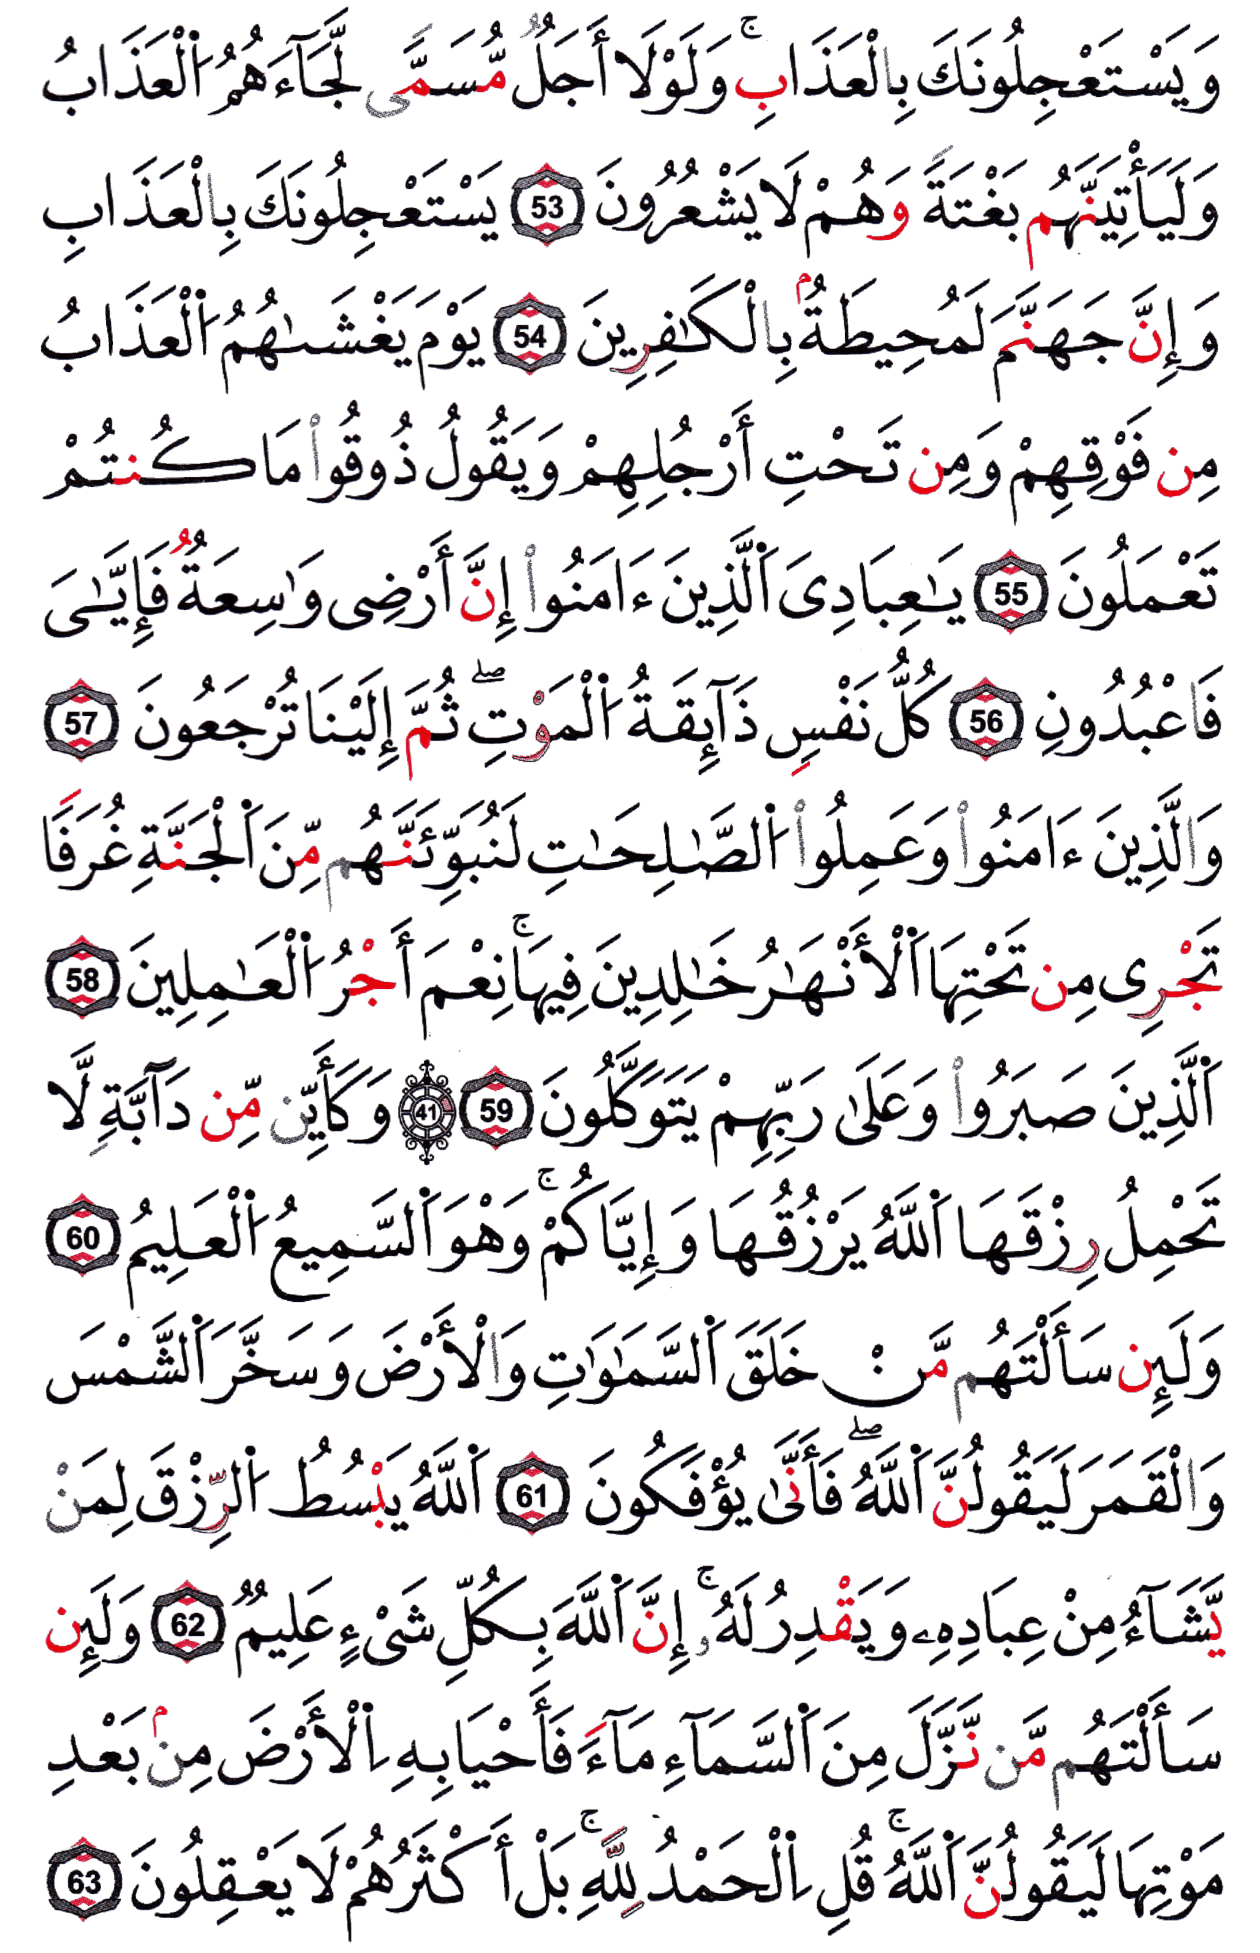 وَيَسْتَعْجِلُونَكَ بِالْعَذَابِ ۚ وَلَوْلَا أَجَلٌ مُّسَمًّى لَّجَآءَهُمُ اُ۬لْعَذَابُ
وَلَيَأْتِيَنَّهُم بَغْتَةً وَهُمْ لَا يَشْعُرُونَ 53 يَسْتَعْجِلُونَكَ بِالْعَذَابِ
وَإِنَّ جَهَنَّمَ لَمُحِيطَةُۢ بِالْكَٰفِرِينَ 54 يَوْمَ يَغْشَىٰهُمُ اُ۬لْعَذَابُ
مِن فَوْقِهِمْ وَمِن تَحْتِ أَرْجُلِهِمْ وَيَقُولُ ذُوقُوا۟ مَا كُنتُمْ
تَعْمَلُونَ 55 يَٰعِبَادِىَ اَ۬لَّذِينَ ءَامَنُوا۟ إِنَّ أَرْضِى وَٰسِعَةٌ فَإِيَّٰىَ
فَاعْبُدُونِ 56 كُلُّ نَفْسٍ ذَآئِقَةُ اُ۬لْمَوْتِ ۖ ثُمَّ إِلَيْنَا تُرْجَعُونَ 57
وَالَّذِينَ ءَامَنُوا۟ وَعَمِلُوا۟ اُ۬لصَّٰلِحَٰتِ لَنُبَوِّئَنَّهُم مِّنَ اَ۬لْجَنَّةِ غُرَفًا
تَجْرِى مِن تَحْتِهَا اَ۬لْأَنْهَٰرُ خَٰلِدِينَ فِيهَا ۚ نِعْمَ أَجْرُ اُ۬لْعَٰمِلِينَ 58
اَ۬لَّذِينَ صَبَرُوا۟ وَعَلَىٰ رَبِّهِمْ يَتَوَكَّلُونَ 59 41 وَكَأَيِّن مِّن دَآبَّةٍ لَّا
تَحْمِلُ رِزْقَهَا اَ۬للَّهُ يَرْزُقُهَا وَإِيَّاكُمْ ۚ وَهْوَ اَ۬لسَّمِيعُ اُ۬لْعَلِيمُ 60
وَلَئِن سَأَلْتَهُم مَّنْ خَلَقَ اَ۬لسَّمَٰوَٰتِ وَالْأَرْضَ وَسَخَّرَ اَ۬لشَّمْسَ
وَالْقَمَرَ لَيَقُولُنَّ اَ۬للَّهُ ۖ فَأَنَّىٰ يُؤْفَكُونَ 61 اَ۬للَّهُ يَبْسُطُ اُ۬لرِّزْقَ لِمَنْ
يَّشَآءُ مِنْ عِبَادِهِۦ وَيَقْدِرُ لَهُۥ ۚ إِنَّ اَ۬للَّهَ بِكُلِّ شَىْءٍ عَلِيمٌ 62 وَلَئِن
سَأَلْتَهُم مَّن نَّزَّلَ مِنَ اَ۬لسَّمَآءِ مَآءً فَأَحْيَا بِهِ اِ۬لْأَرْضَ مِنۢ بَعْدِ
مَوْتِهَا لَيَقُولُنَّ اَ۬للَّهُ ۚ قُلِ اِ۬لْحَمْدُ لِلَّهِ ۚ بَلْ أَكْثَرُهُمْ لَا يَعْقِلُونَ 63